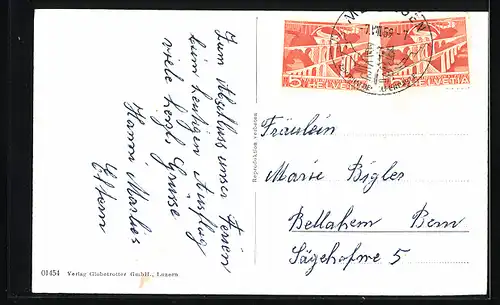 Zum Abschluss unser Ferien
beim heutigen Ausflug
viele herzl. Grüsse
Hanni Marlies
Eltern
Reproduktion verboten
5 HELVETIA
5 HELVETIA
Fräulein
Marie Bigler
Bellahem Bern
Sägehofme 5
01454 Verlag Globetrotter GmbH., Luzern